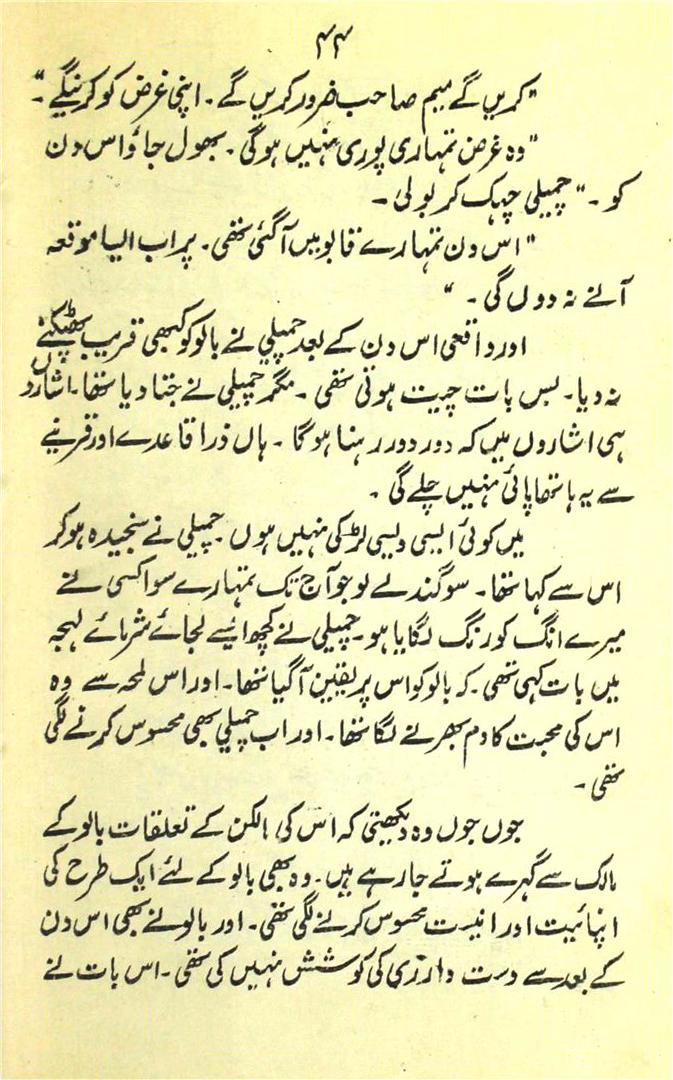 ۴۴
"کریں گے میم صاحب ضرور کریں گے۔ اپنی غرض کو کرینگے۔"
"وہ غرض تمہاری پوری نہیں ہوگی۔ بھول جاؤ اس دن
کو۔" چمیلی چہک کر بولی۔
"اس دن تمہارے قابو میں آگئی تھی۔ پر اب ایسا موقعہ
آنے نہ دوں گی۔"
اور واقعی اس دن کے بعد چمپلی نے بالو کو کبھی قریب پھٹکنے
نہ دیا۔ بس بات چیت ہوتی تھی۔ مگر چمپلی نے جتا دیا تھا۔ اشاروں
ہی اشاروں میں کہ دور دور رہنا ہوگا۔ ہاں ذرا قاعدے اور قرینے
سے یہ ہاتھا پائی نہیں چلے گی۔
میں کوئی ایسی ویسی لڑکی نہیں ہوں۔ چمپلی نے سنجیدہ ہو کر
اس سے کہا تھا۔ سوگند لے لو جو آج تک تمہارے سوا کسی نے
میرے انگ کو رنگ لگایا ہو۔ چمپلی نے کچھ ایسے لجائے شرمائے لہجہ
میں بات کہی تھی۔ کہ بالو کو اس پر یقین آگیا تھا۔ اور اس لمحہ سے وہ
اس کی محبت کا دم بھرنے لگا تھا۔ اور اب چمپلی بھی محسوس کرنے لگی
تھی۔
جوں جوں وہ دیکھتی کہ اس کی مالکن کے تعلقات بالو کے
مالک سے گہرے ہوتے جارہے ہیں۔ وہ بھی بالو کے لئے ایک طرح کی
اپنائیت اور انسیت محسوس کرنے لگی تھی۔ اور بالو نے بھی اس دن
کے بعد سے دست درازی کی کوشش نہیں کی تھی۔ اس بات نے